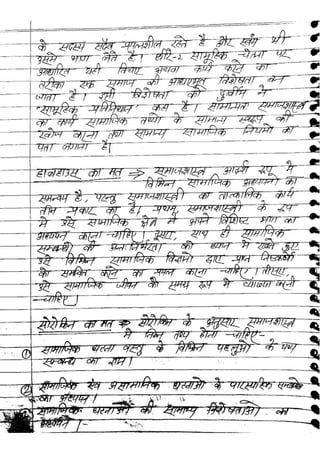 के सदस्य सदैव प्रयत्नशील रहते है और स्वयं भी
उसमे भाग लेते है। धीरे-2 सामूहिक चेतना पर
आधारित यही विचार अथवा कार्य करने का
तरीका एक समाज की आधारभूत विशेषता बन
जाता है। इसी विशेषता को दुर्खीम ने
"सामूहिक प्रतिनिधान" कहा है। सामान्यतः समाजशास्त्र
का कार्य सामाजिक तथ्यो के सामान्य स्वरूप की
खोज करना तथा सामान्य सामाजिक नियमो का
पता लगाना है।
हाबहाउस का मत ⇒ समाजशास्त्र आदर्श रूप मे
विभिन्न सामाजिक अध्ययनो का
समन्वय है, परन्तु समाजशास्त्री का तात्कालिक कार्य
तीन प्रकार का है। प्रथम, समाजशास्त्री के रूप
मे उसे सामाजिक क्षेत्र मे अपने विशिष्ट भाग का
अध्ययन करना चाहिए। दूसरा, साथ ही सामाजिक
सम्बन्धो की अन्तःनिर्भरता को ध्यान मे रखते हुए
उसे विभिन्न सामाजिक विज्ञानो द्वारा प्राप्त निष्कर्षो
के समन्वित करने का प्रयत्न करना चाहिए। तीसरा,
उसे सामाजिक जीवन की समग्र रूप मे व्याख्या करनी
चाहिए।
सोरोकिन का मत ⇒ सोरोकिन के अनुसार समाजशास्त्र
मे निम्न तथ्य होना चाहिए-
① सामाजिक घटना वस्तु के विभिन्न पहलुओ के पथ
सम्बन्ध का ज्ञान।
② सामाजिक एवं असामाजिक घटनाओ के पारस्परिक सम्बन्धो
का अध्ययन।
सामाजिक घटनाओ की सामान्य विशेषताओ का
अध्ययन।-